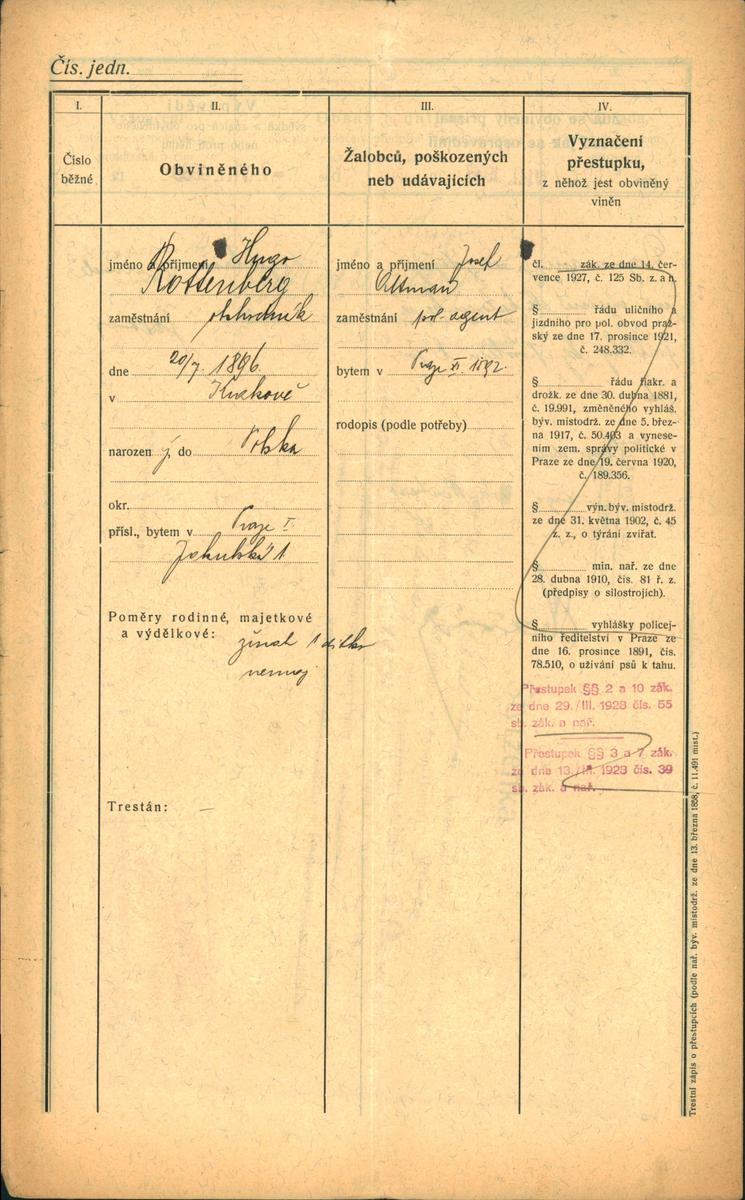 Čís. jedn.
I.
Číslo
běžné
II.
Obviněného
III.
Žalobců, poškozených
neb udávajících
IV.
Vyznačení
přestupku,
z něhož jest obviněný
viněn
jméno a příjmení Hugo
Rottenberg
zaměstnání obchodník
dne 20/7. 1896.
v Krakově
narozen do Polska
okr.
přísl., bytem v Praze I.
Jakubská 1
Poměry rodinné, majetkové
a výdělkové:
ženat 1 dítko
nemaj
Trestán: —
jméno a příjmení Josef
Altman
zaměstnání pol. agent
bytem v Praze XI. 1892.
rodopis (podle potřeby)
čl. zák. ze dne 14. čer-
vence 1927, č. 125 Sb. z. a n.
§ řádu uličního a
jízdního pro pol. obvod praž-
ský ze dne 17. prosince 1921,
č. 248.332.
§ řádu fiakr. a
drožk. ze dne 30. dubna 1881,
č. 19.991, změněného vyhláš.
býv. místodrž. ze dne 5. břez-
na 1917, č. 50.403 a vynese-
ním zem. správy politické v
Praze ze dne 19. června 1920,
č. 189.356.
§ výn. býv. místodrž.
ze dne 31. května 1902, č. 45
z. z., o týrání zvířat.
§ min. nař. ze dne
28. dubna 1910, čís. 81 ř. z.
(předpisy o silostrojích).
§ vyhlášky policej-
ního ředitelství v Praze ze
dne 16. prosince 1891, čís.
78.510, o užívání psů k tahu.
Přestupek §§ 2 a 10 zák.
ze dne 29./III. 1928 čís. 55
sb. zák. a nař.
Přestupek §§ 3 a 7 zák.
ze dne 13./III. 1928 čís. 39
sb. zák. a nař.
Trestní zápis o přestupcích (podle nař. býv. místodrž. ze dne 13. března 1858, č. 11.491 míst.)